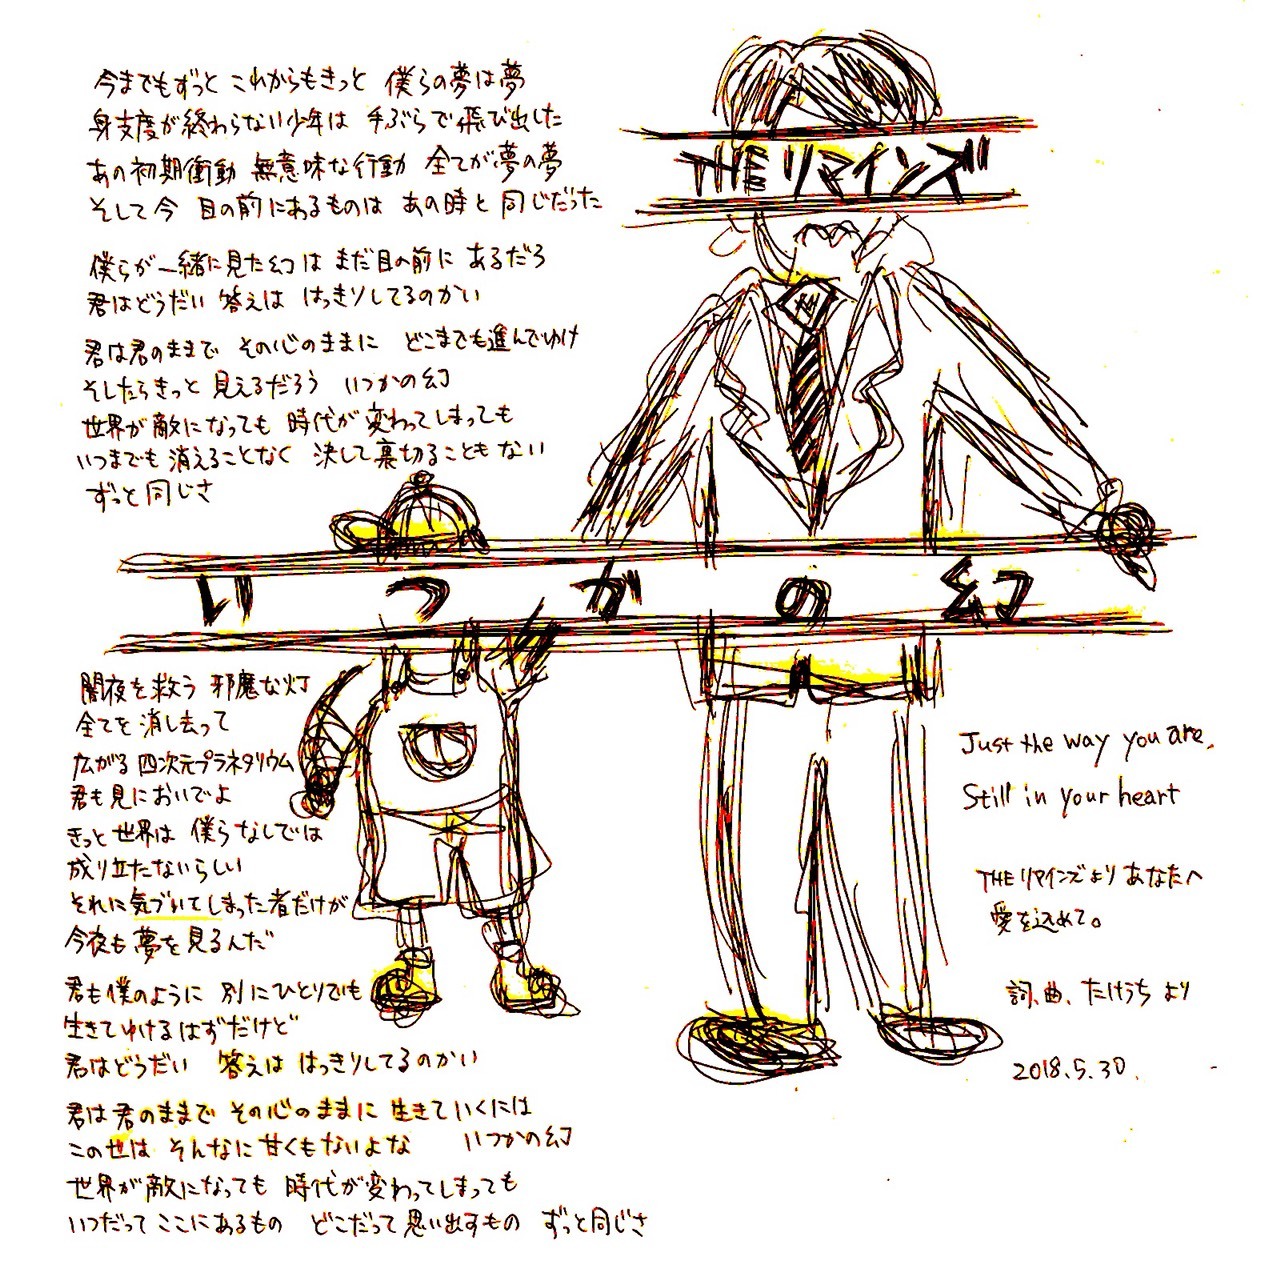 今までもずっと これからもきっと 僕らの夢は夢
身支度が終わらない少年は 手ぶらで飛び出した
あの初期衝動 無意味な行動 全てが夢の夢
そして今 目の前にあるものは あの時と同じだった
僕らが一緒に見た幻は まだ目の前に あるだろ
君はどうだい 答えは はっきりしてるのかい
君は君のままで その心のままに どこまでも進んでゆけ
そしたらきっと 見えるだろう いつかの幻
世界が敵になっても 時代が変わってしまっても
いつまでも消えることなく 決して裏切ることもない
ずっと同じさ
THEリマインズ
いつかの幻
闇夜を救う 邪魔な灯
全てを消し去って
広がる四次元プラネタリウム
君も見においでよ
きっと世界は 僕らなしでは
成り立たないらしい
それに気づいてしまった者だけが
今夜も夢を見るんだ
君も僕のように 別にひとりでも
生きてゆけるはずだけど
君はどうだい 答えは はっきりしてるのかい
君は君のままで その心のままに 生きていくには
この世は そんなに甘くもないよな いつかの幻
世界が敵になっても 時代が変わってしまっても
いつだってここにあるもの どこだって思い出すもの ずっと同じさ
Just the way you are.
Still in your heart
THEリマインズより あなたへ
愛を込めて。
詞、曲、たけうちより
2018.5.30.